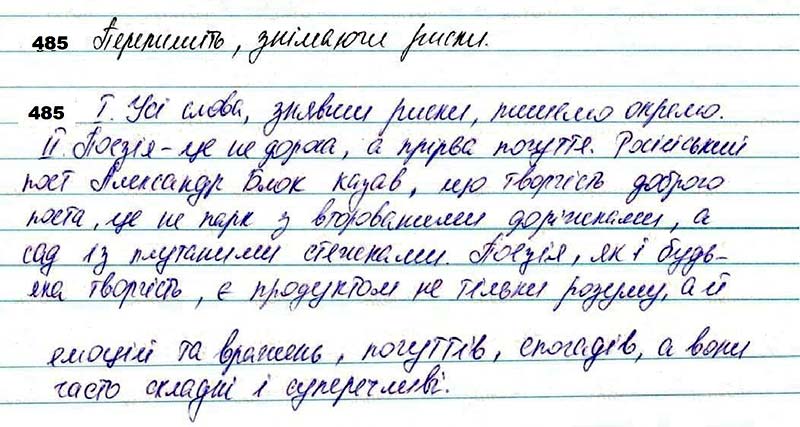 485 Перепишіть, знімаючи риски.
485 І. Усі слова, знявши риски, пишемо окремо.
ІІ. Поезія – це не дорога, а прірва почуття. Російський
поет Александр Блок казав, що творчість доброго
поета, це не парк з второваними доріжками, а
сад із плутаними стежками. Поезія, як і будь-
яка творчість, є продуктом не тільки розуму, а й
емоцій та вражень, почуттів, спогадів, а вони
часто складні і суперечливі.